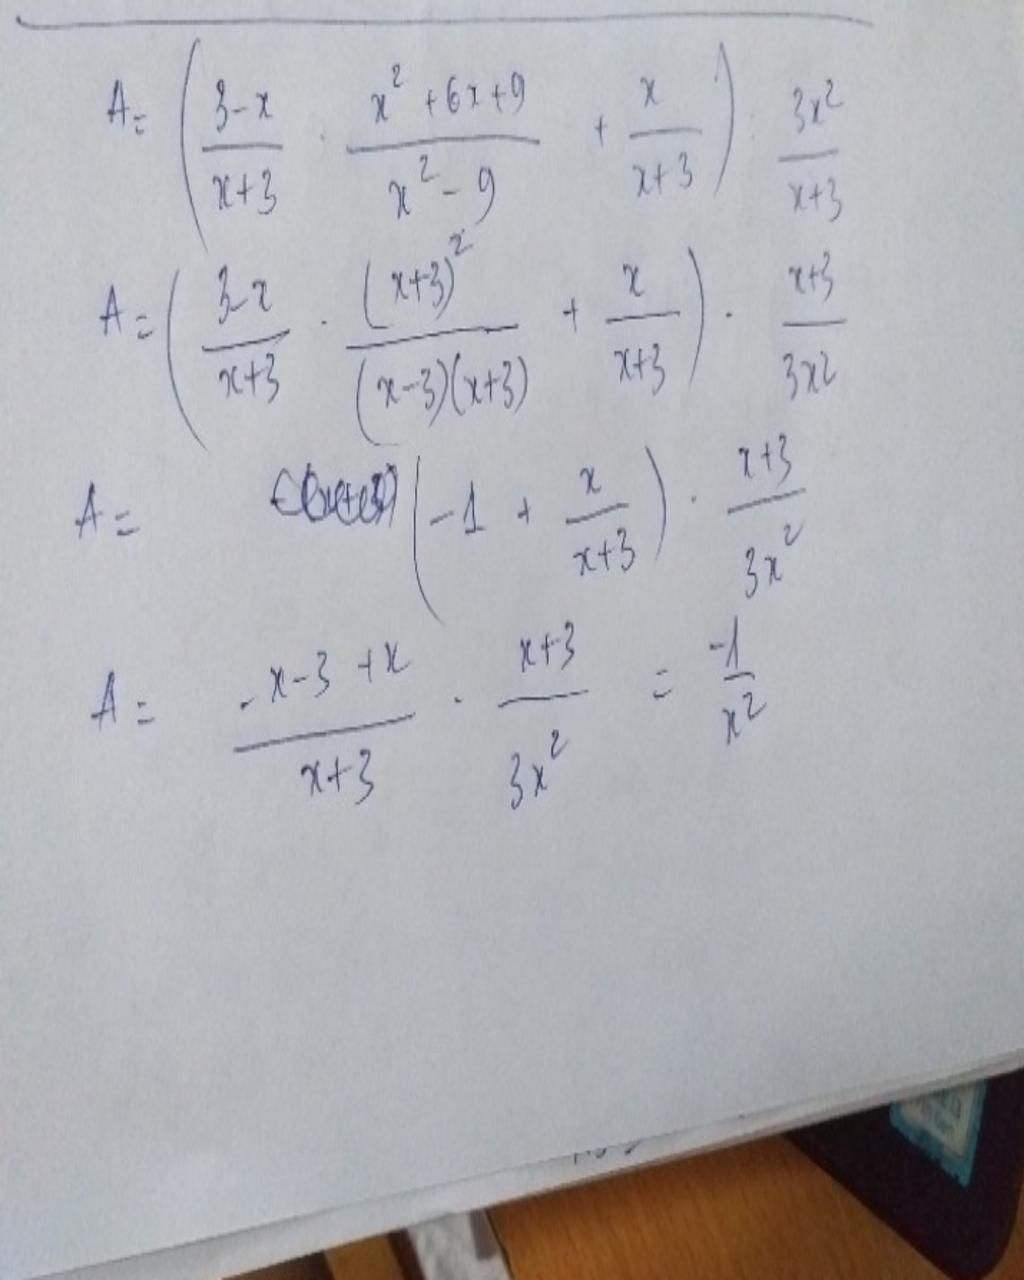 A = ( (3-x)/(x+3) . (x² + 6x + 9)/(x² - 9) + x/(x+3) ) : 3x²/(x+3)
A = ( (3-x)/(x+3) . (x+3)²/((x-3)(x+3)) + x/(x+3) ) . (x+3)/3x²
A = ( -1 + x/(x+3) ) . (x+3)/3x²
A = (-x-3+x)/(x+3) . (x+3)/3x² = -1/x²